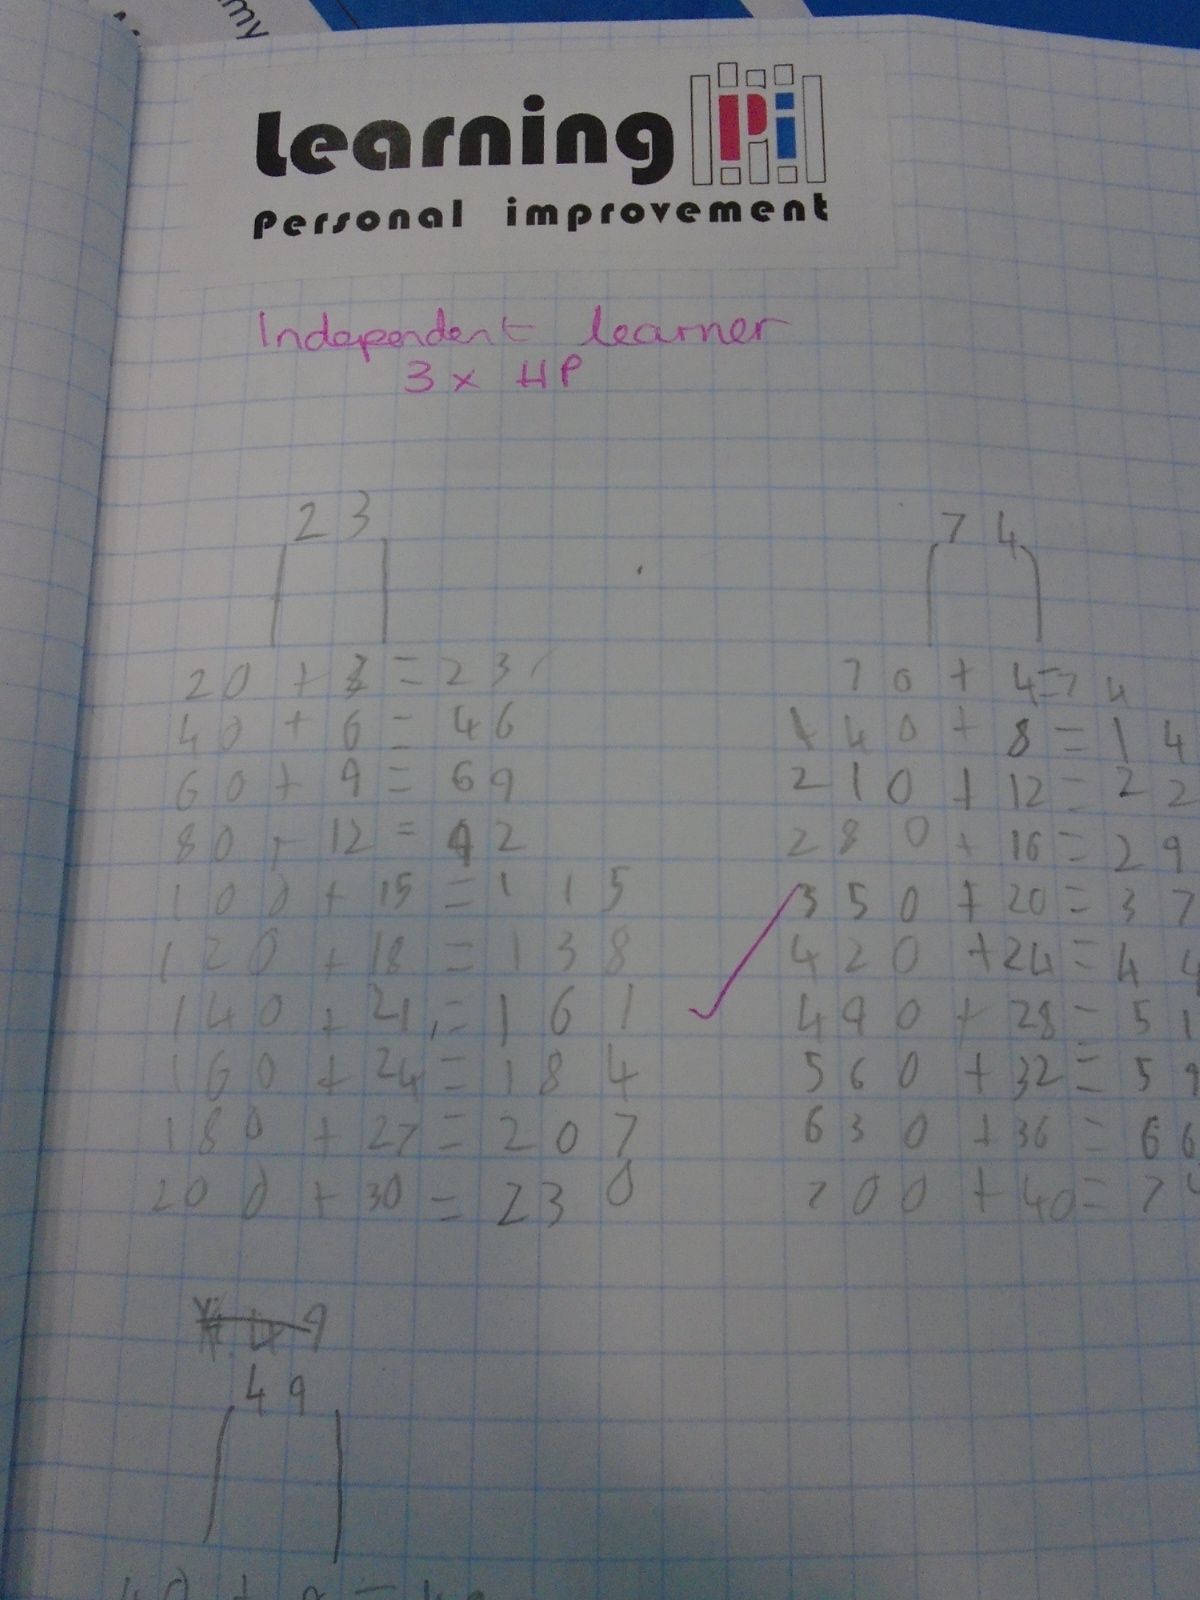 my
Learning Pi
Personal improvement
Independent learner
3 x HP
23
20 + 3 = 23
40 + 6 = 46
60 + 9 = 69
80 + 12 = 92
100 + 15 = 115
120 + 18 = 138
140 + 21 = 161
160 + 24 = 184
180 + 27 = 207
200 + 30 = 230
74
70 + 4 = 74
140 + 8 = 14
210 + 12 = 22
280 + 16 = 29
350 + 20 = 37
420 + 24 = 44
490 + 28 = 51
560 + 32 = 59
630 + 36 = 66
700 + 40 = 74
9
49